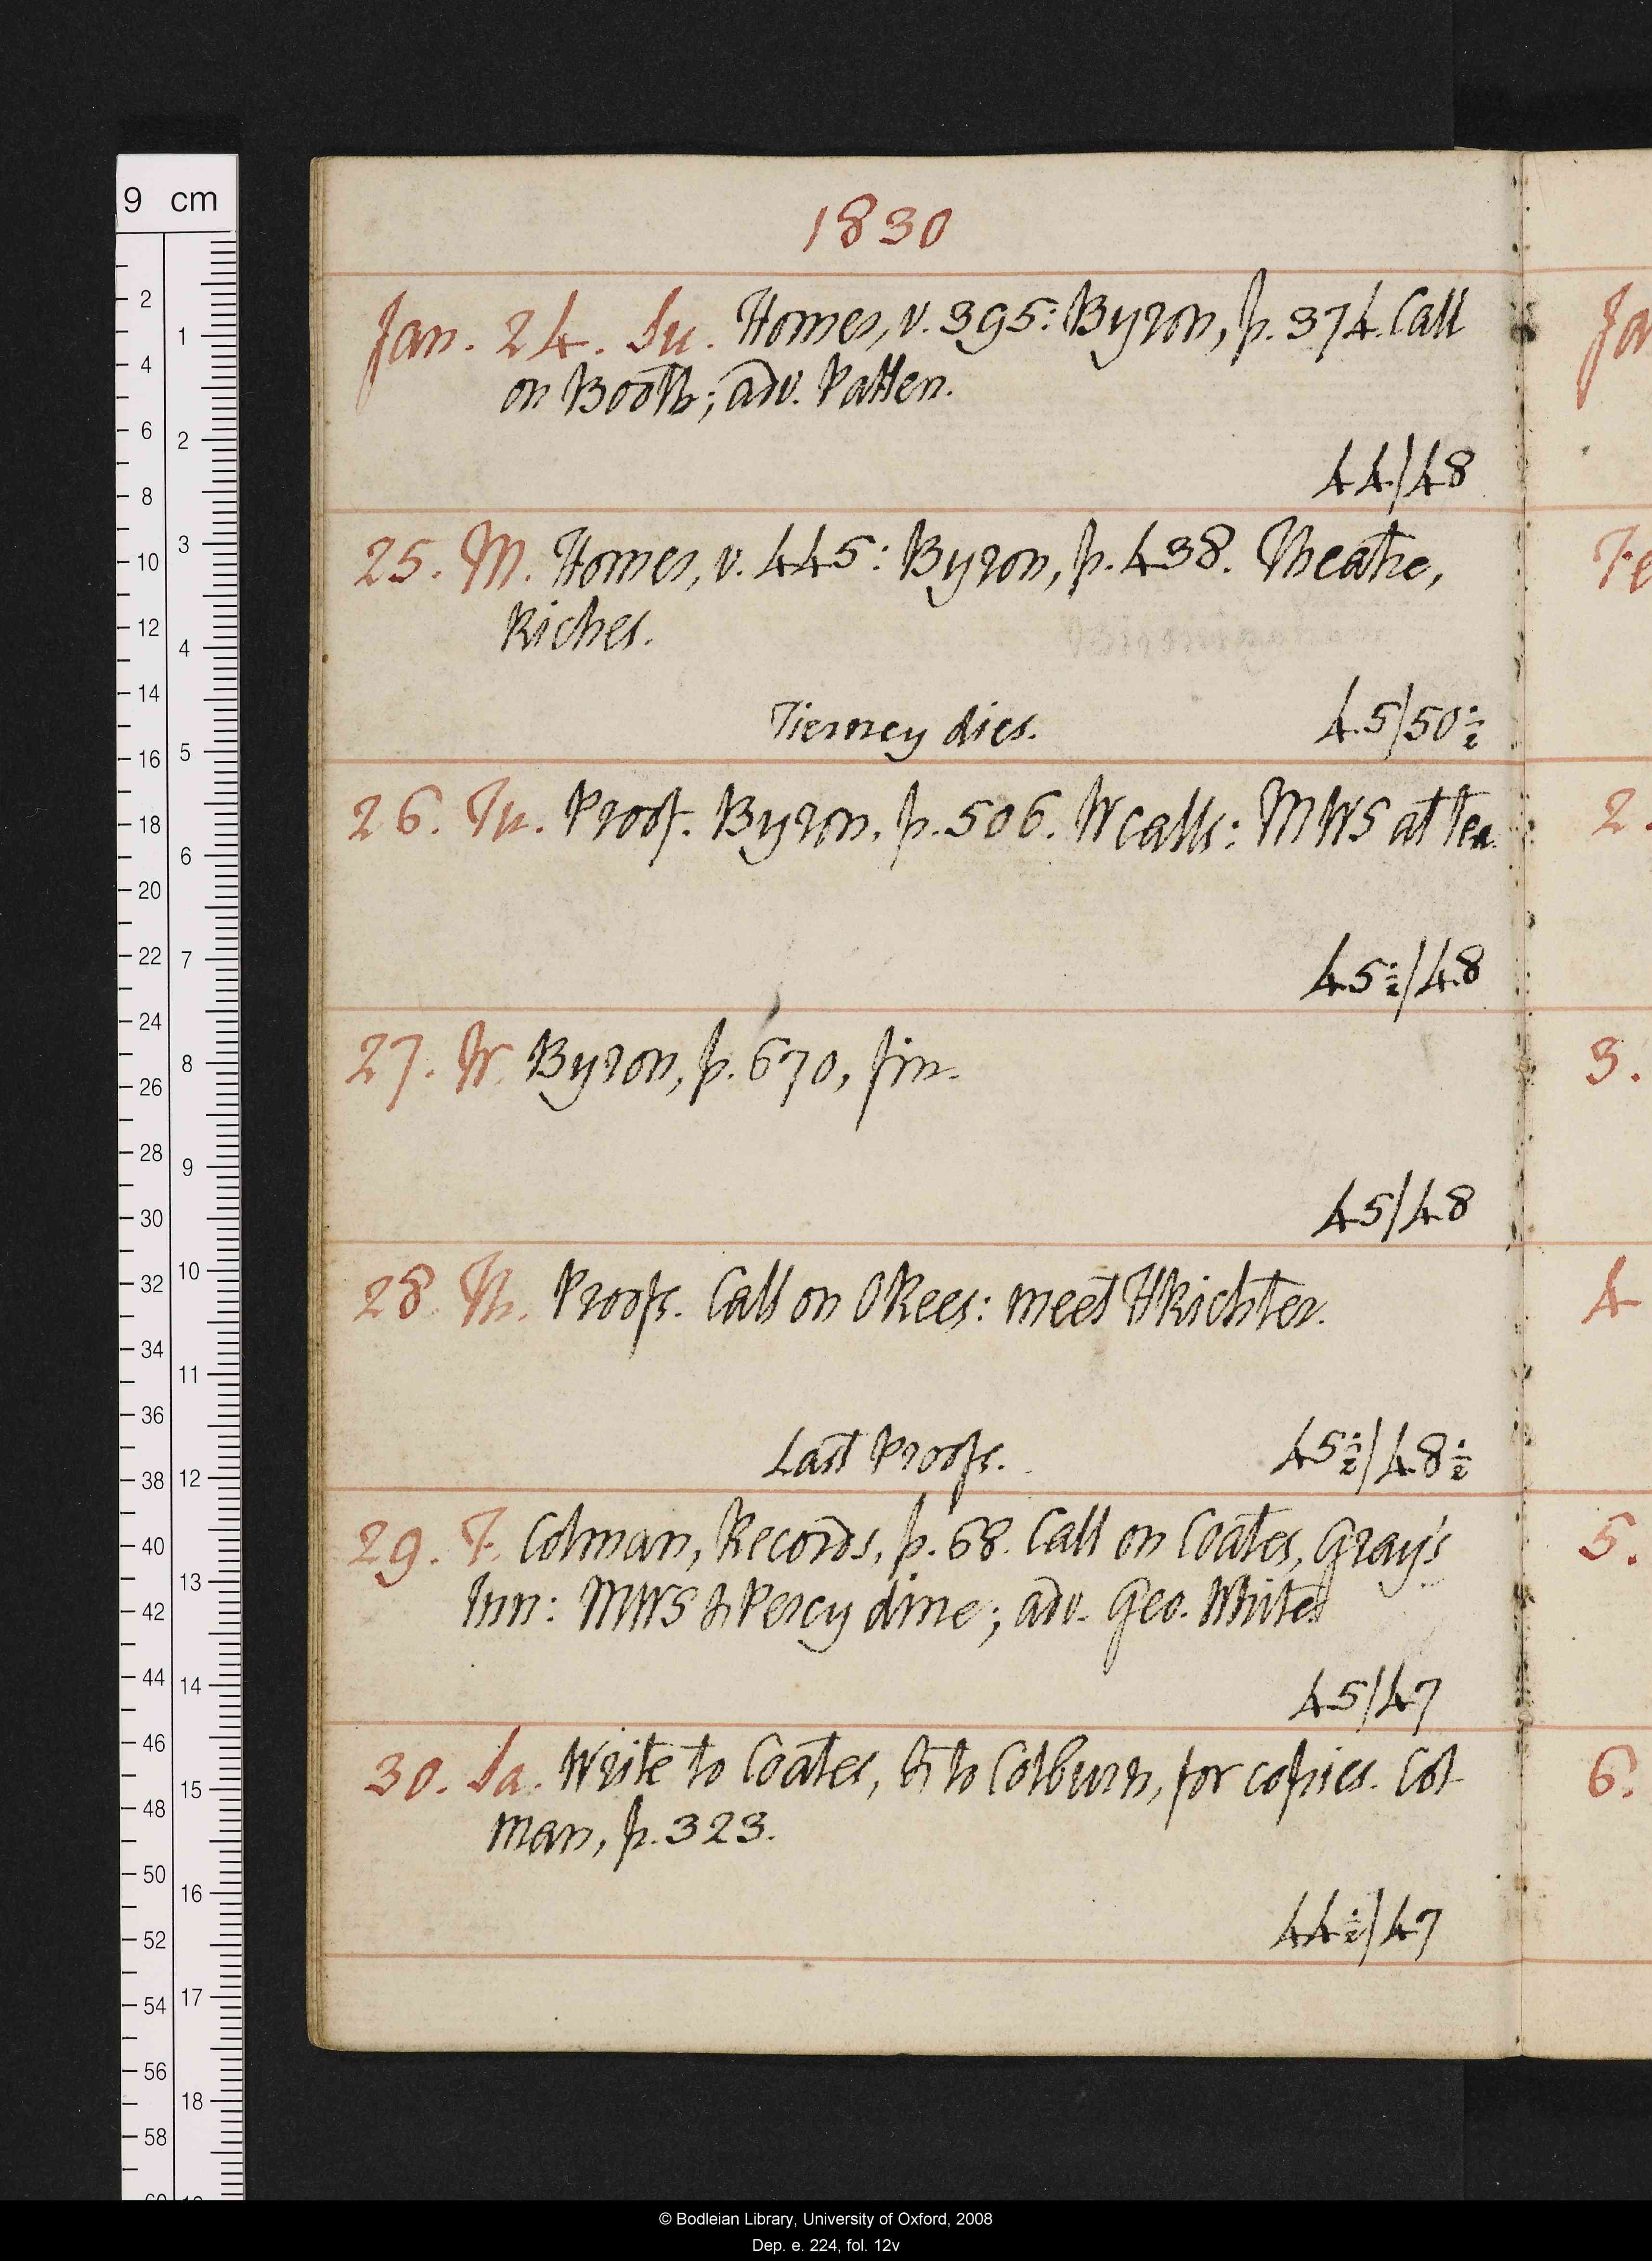 1830
Jan. 24. Su. Homer, v. 395: Byron, p. 374. Call
on Booth; adv. Patten.
44/48
25. M. Homer, v. 445: Byron, p. 438. Theatre,
Riches.
Tierney dies. 45/50½
26. Tu. Proof. Byron, p. 506. W calls: MWS at tea.
45½/48
27. W. Byron, p. 670, fin.
45/48
28. Th. Proofs. Call on O Rees: meet H Richter.
Last Proofs. 45½/48½
29. F. Colman, Records, p. 68. Call on Coates, Gray's
Inn: MWS & Percy dine; adv. Geo. White
45/47
30. Sa. Write to Coates, & to Colburn, for copies. Col
man, p. 323.
44½/47
Ja
Fe
2.
3.
4
5.
6.
9 cm
2 4 6 8 10 12 14 16 18 20 22 24 26 28 30 32 34 36 38 40 42 44 46 48 50 52 54 56 58
1 2 3 4 5 6 7 8 9 10 11 12 13 14 15 16 17 18
© Bodleian Library, University of Oxford, 2008
Dep. e. 224, fol. 12v